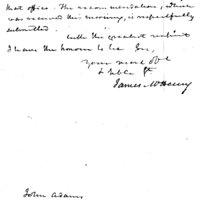 that office. The recommendation, which
was received this morning, is respectfully
submitted.
with the greatest respect
I have the honour to be Sir,
your most obt
& hble St
James McHenry
John Adams